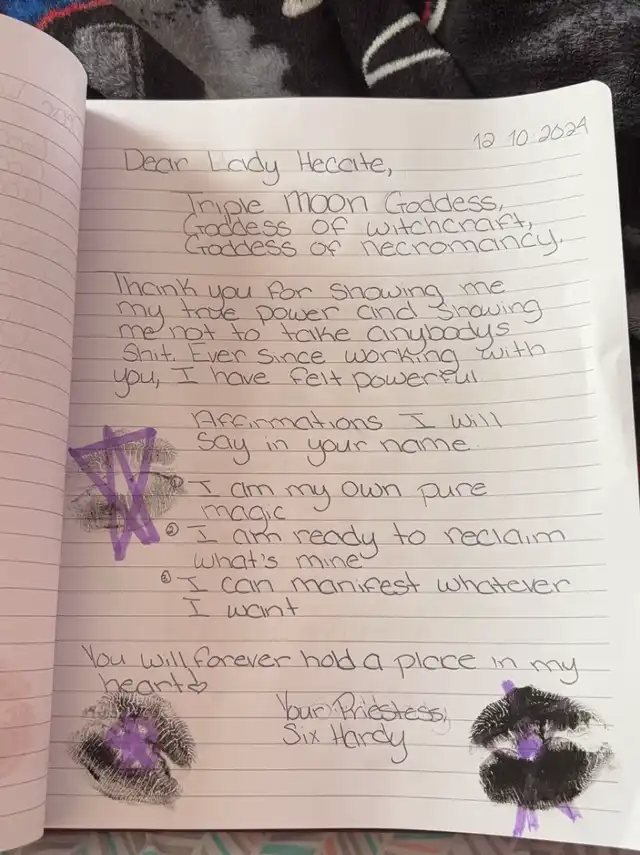 12 10 2024
Dear Lady Hecate,
Triple Moon Goddess,
Goddess of witchcraft,
Goddess of necromancy.
Thank you for showing me
my true power and showing
me not to take anybodys
shit. Ever since working with
you, I have felt powerful
Affirmations I will
say in your name.
① I am my own pure
magic
② I am ready to reclaim
what's mine
③ I can manifest whatever
I want
You will forever hold a place in my
heart♡
Your Priestess,
Six Hardy